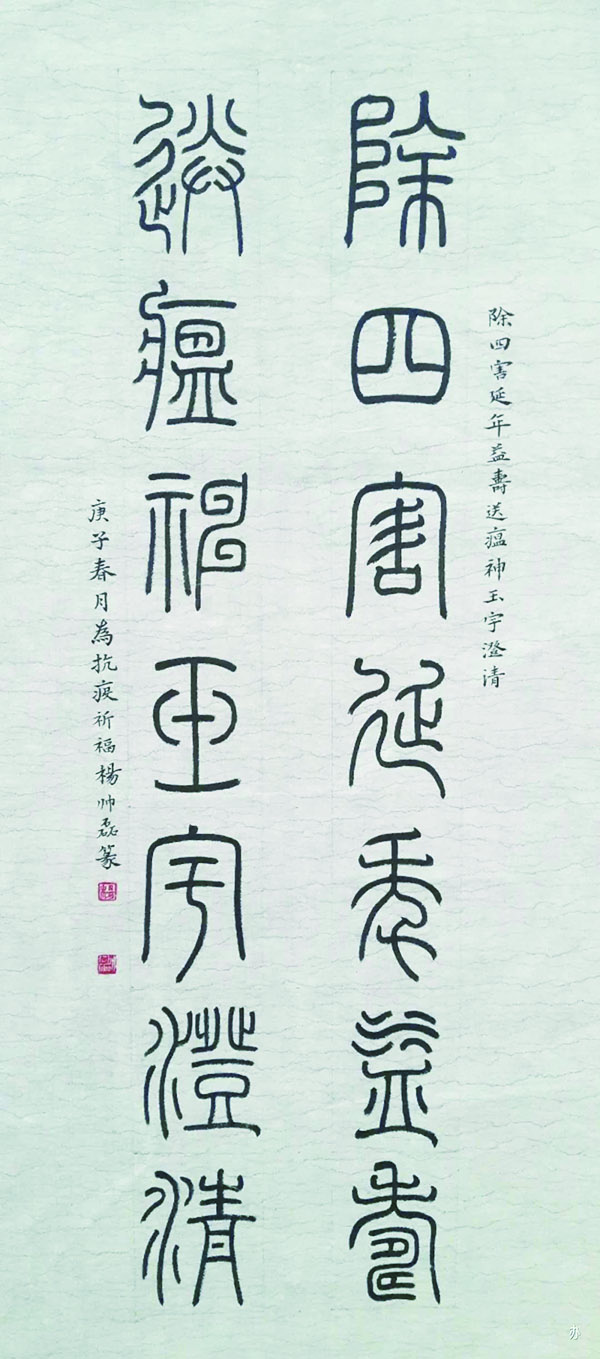 除四害延年益壽送瘟神玉宇澄清
除四害延年益壽
送瘟神玉宇澄清
庚子春月為抗疫祈福楊帅磊篆
办